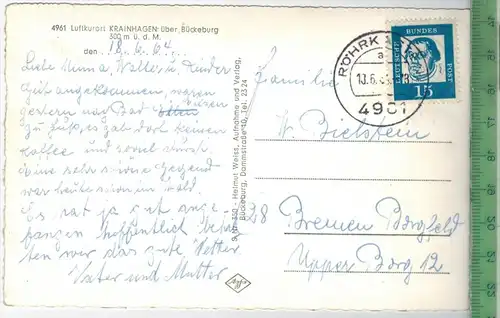 4961 Luftkurort KRAINHAGEN über Bückeburg
300 m ü. d. M.
den 18.6.64
Liebe Munna, Walter u. Kinder
Gut angekommen, waren
gestern nach Bad Eilsen
zu Fuß, es gab dort keinen
Kaffee und
eine sehr schöne Gegend
war heute schon im Wald.
Es hat ja gut ange-
fangen hoffentlich behal-
ten wir das gute Wetter
Vater und Mutter
S 9/352 - Helmut Weiss, Aufnahme und Verlag,
Bückeburg, Dammstraße 10, Tel. 23 24
Agfa
RÖHRK
a
4961
DEUTSCHE BUNDESPOST
15
Familie
W. Bielstein
28 Bremen Borgfeld
Upper Borg 12